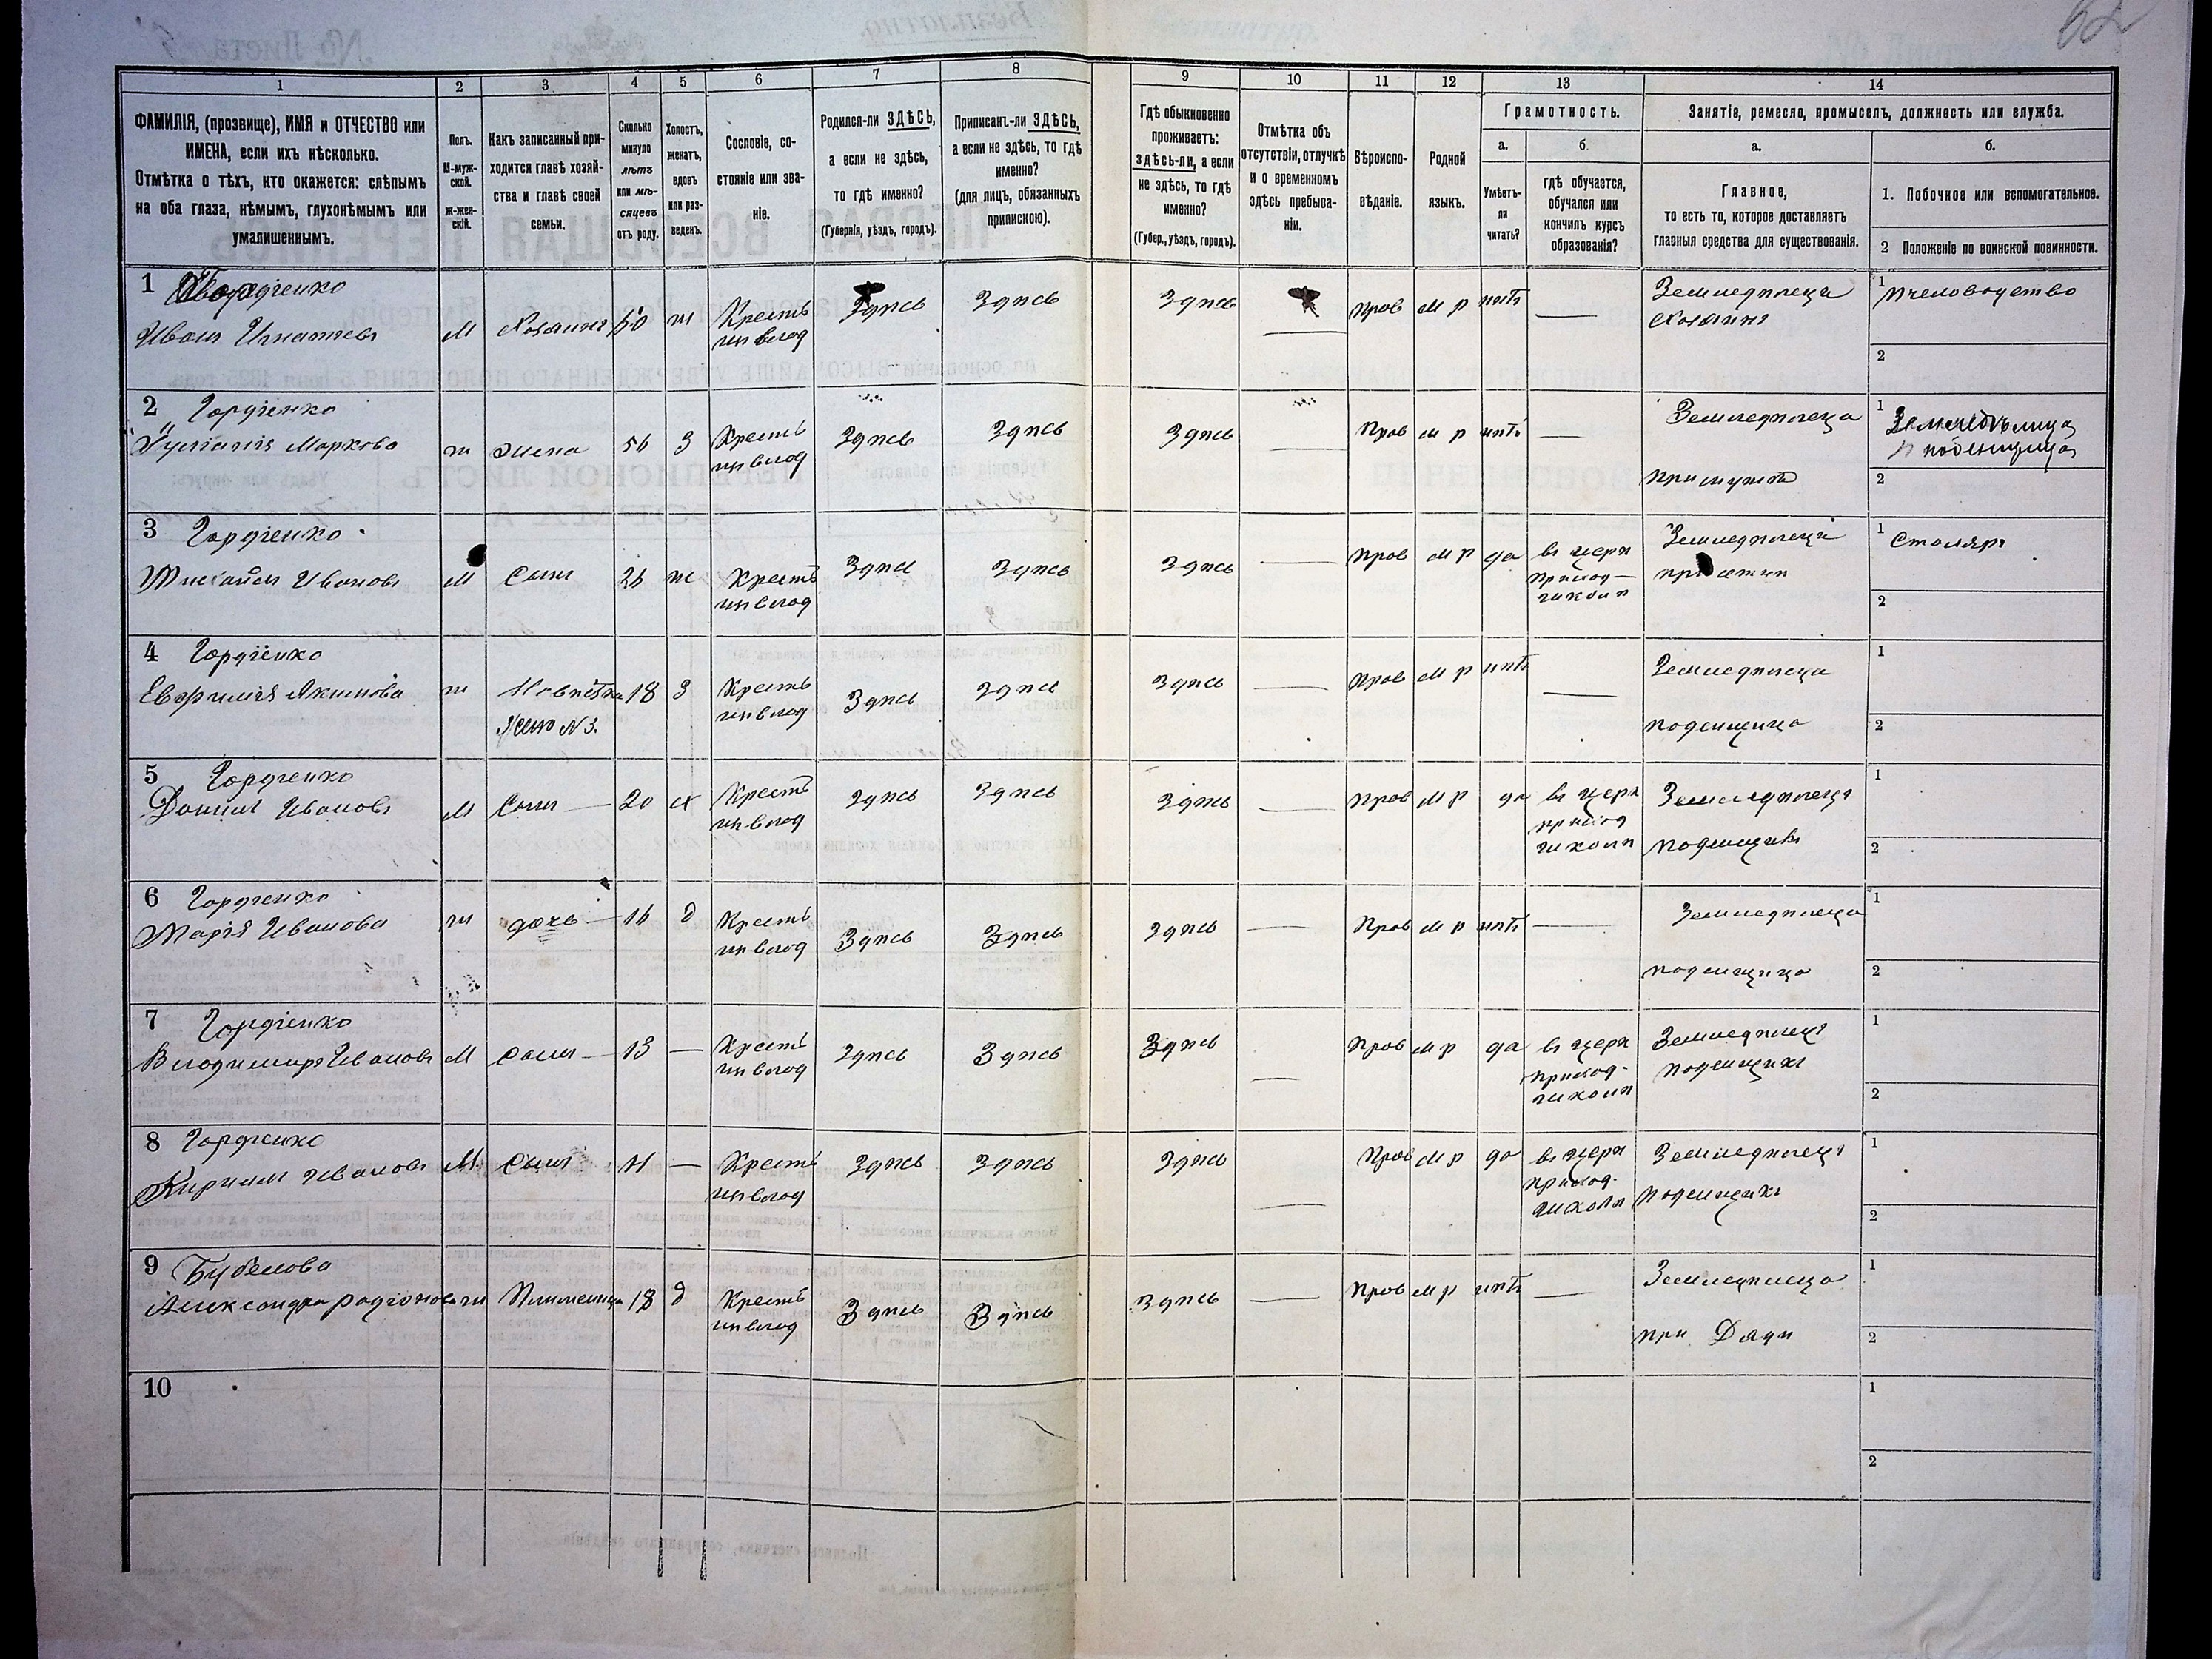 62
1
2
3
4
5
6
7
8
9
10
11
12
13
14
ФАМИЛІЯ, (прозвище), ИМЯ и ОТЧЕСТВО или
ИМЕНА, если ихъ нѣсколько.
Отмѣтка о тѣхъ, кто окажется: слѣпымъ
на оба глаза, нѣмымъ, глухонѣмымъ или
умалишеннымъ.
Полъ.
М-муж-
ской.
ж-жен-
скій.
Какъ записанный при-
ходится главѣ хозяй-
ства и главѣ своей
семьи.
Сколько
минуло
лѣтъ
или мѣ-
сяцевъ
отъ роду.
Холостъ,
женатъ,
вдовъ
или раз-
веденъ.
Сословіе, со-
стояніе или зва-
ніе.
Родился-ли ЗДѢСЬ,
а если не здѣсь,
то гдѣ именно?
(Губернія, уѣздъ, городъ).
Приписанъ-ли ЗДѢСЬ,
а если не здѣсь, то гдѣ
именно?
(для лицъ, обязанныхъ
припискою).
Гдѣ обыкновенно
проживаетъ:
здѣсь-ли, а если
не здѣсь, то гдѣ
именно?
(Губер., уѣздъ, городъ).
Отмѣтка объ
отсутствіи, отлучкѣ
и о временномъ
здѣсь пребыва-
ніи.
Вѣроиспо-
вѣданіе.
Родной
языкъ.
Грамотность.
а.
Умѣетъ-
ли
читать?
б.
гдѣ обучается,
обучался или
кончилъ курсъ
образованія?
Занятіе, ремесло, промыселъ, должность или служба.
а.
Главное,
то есть то, которое доставляетъ
главныя средства для существованія.
б.
1. Побочное или вспомогательное.
2 Положеніе по воинской повинности.
1 Гордіенко
Иванъ Игнатьевъ М Хозяинъ 60 ж Крестья
инъ влад Здѣсь Здѣсь Здѣсь — Прав м р нѣтъ — Земледѣлецъ
Хозяинъ 1 Пчеловодство
2
2 Гордіенко
Маркова ж Жена 56 З Крестья
инъ влад Здѣсь Здѣсь Здѣсь — Прав м р нѣтъ — Земледѣлица
при мужѣ 1 Земледѣлица
поденщица
2
3 Гордіенко
Михаилъ Ивановъ М Сынъ 26 ж Крестья
инъ влад Здѣсь Здѣсь Здѣсь — Прав м р да въ церк
приход
школѣ Земледѣлецъ
при отцѣ 1 Столяръ
2
4 Гордіенко
Евфимія Якимова ж Невѣстка 18 З Крестья
инъ влад Здѣсь Здѣсь Здѣсь — Прав м р нѣтъ — Земледѣлица
Жена N 3.
поденщица 1
2
5 Гордіенко
Даніилъ Ивановъ М Сынъ — 20 х Крестья
инъ влад Здѣсь Здѣсь Здѣсь — Прав м р да въ церк
приход
школѣ Земледѣлецъ
поденщикъ 1
2
6 Гордіенко
Марія Иванова ж дочь — 16 д Крестья
инъ влад Здѣсь Здѣсь Здѣсь — Прав м р нѣтъ — Земледѣлица
поденщица 1
2
7 Гордіенко
Владимиръ Ивановъ М Сынъ — 13 — Крестья
инъ влад Здѣсь Здѣсь Здѣсь — Прав м р да въ церк
приход-
школѣ Земледѣлецъ
поденщикъ 1
2
8 Гордіенко
Кирилъ Ивановъ М Сынъ 11 — Крестья
инъ влад Здѣсь Здѣсь Здѣсь — Прав м р да въ церк
приход-
школѣ Земледѣлецъ
поденщикъ 1
2
9 Бубелова
Александра Радіонова ж Племеница 18 д Крестья
инъ влад Здѣсь Здѣсь Здѣсь — Прав м р нѣтъ — Земледѣлица
при Дяди 1
2
10 1
2